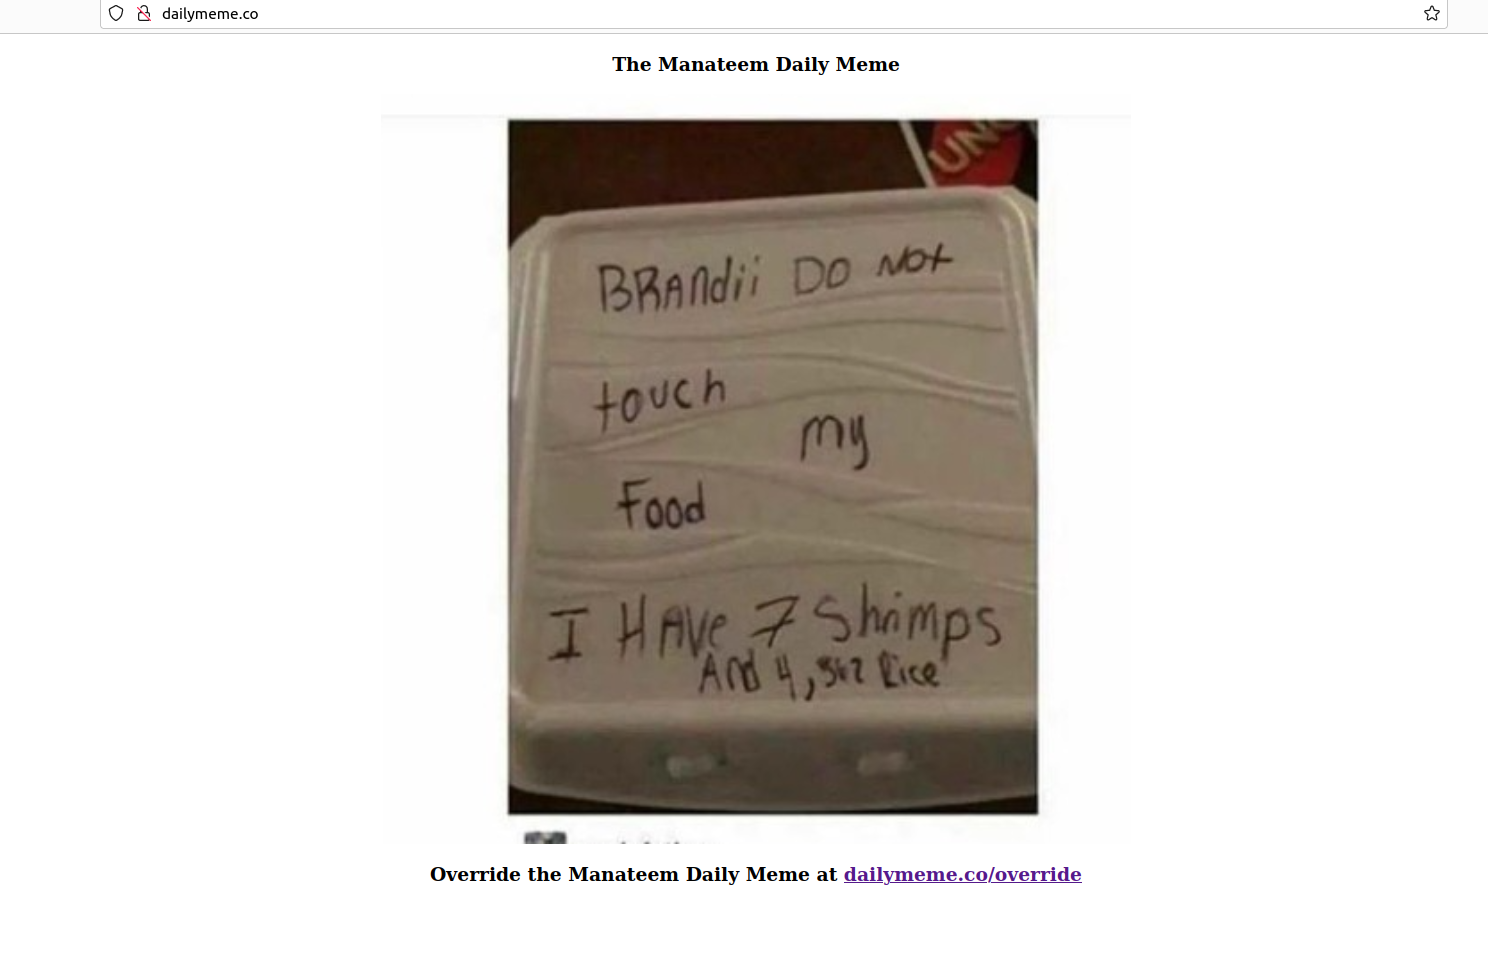 dailymeme.co
The Manateem Daily Meme
UNO
BRAndii DO NOt
touch
my
Food
I HAVe 7 Shrimps
And 4,562 Rice
Override the Manateem Daily Meme at dailymeme.co/override